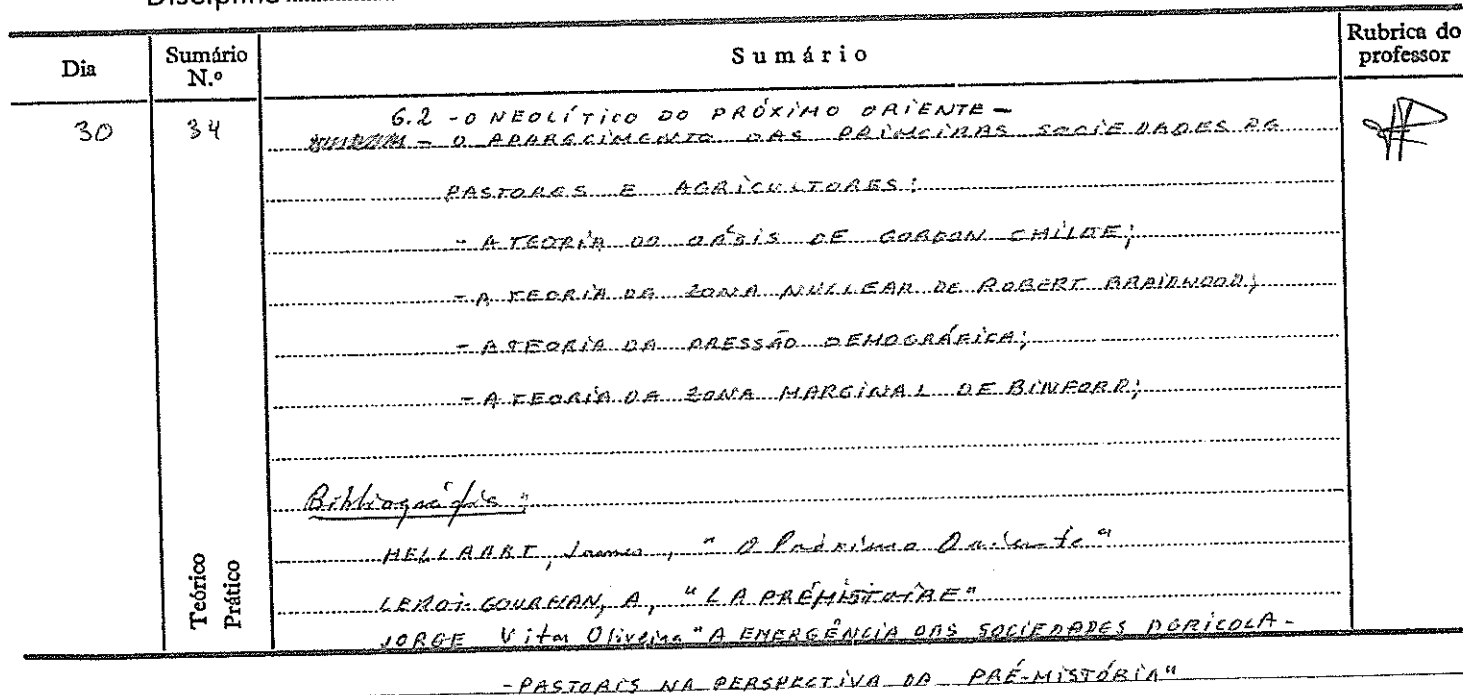 Disciplina
Dia
Sumário N.º
Sumário
Rubrica do professor
30
34
6.2 - O NEOLÍTICO DO PRÓXIMO ORIENTE -
- O APARECIMENTO DAS PRIMEIRAS SOCIEDADES DE
PASTORES E AGRICULTORES:
- A TEORIA DO OÁSIS DE GORDON CHILDE;
- A TEORIA DA ZONA NUCLEAR DE ROBERT BRAIDWOOD;
- A TEORIA DA PRESSÃO DEMOGRÁFICA;
- A TEORIA DA ZONA MARGINAL DE BINFORD;
Bibliografia:
MELLAART, James, "O Próximo Oriente"
LEROI-GOURHAN, A, "LA PRÉHISTOIRE"
JORGE Vitor Oliveira "A EMERGÊNCIA DAS SOCIEDADES AGRICOLA-
-PASTORIS NA PERSPECTIVA DA PRÉ-HISTÓRIA"
Teórico
Prático